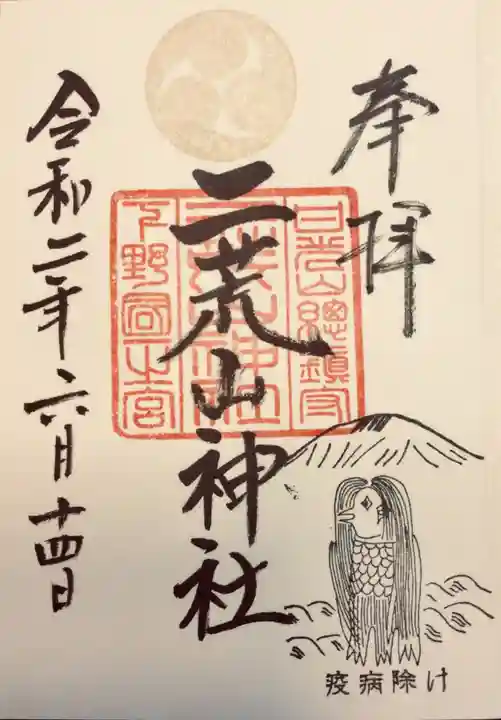 奉拝
日光山總鎮守
二荒山神社
二荒山神社
下野国一之宮
令和二年六月十四日
疫病除け